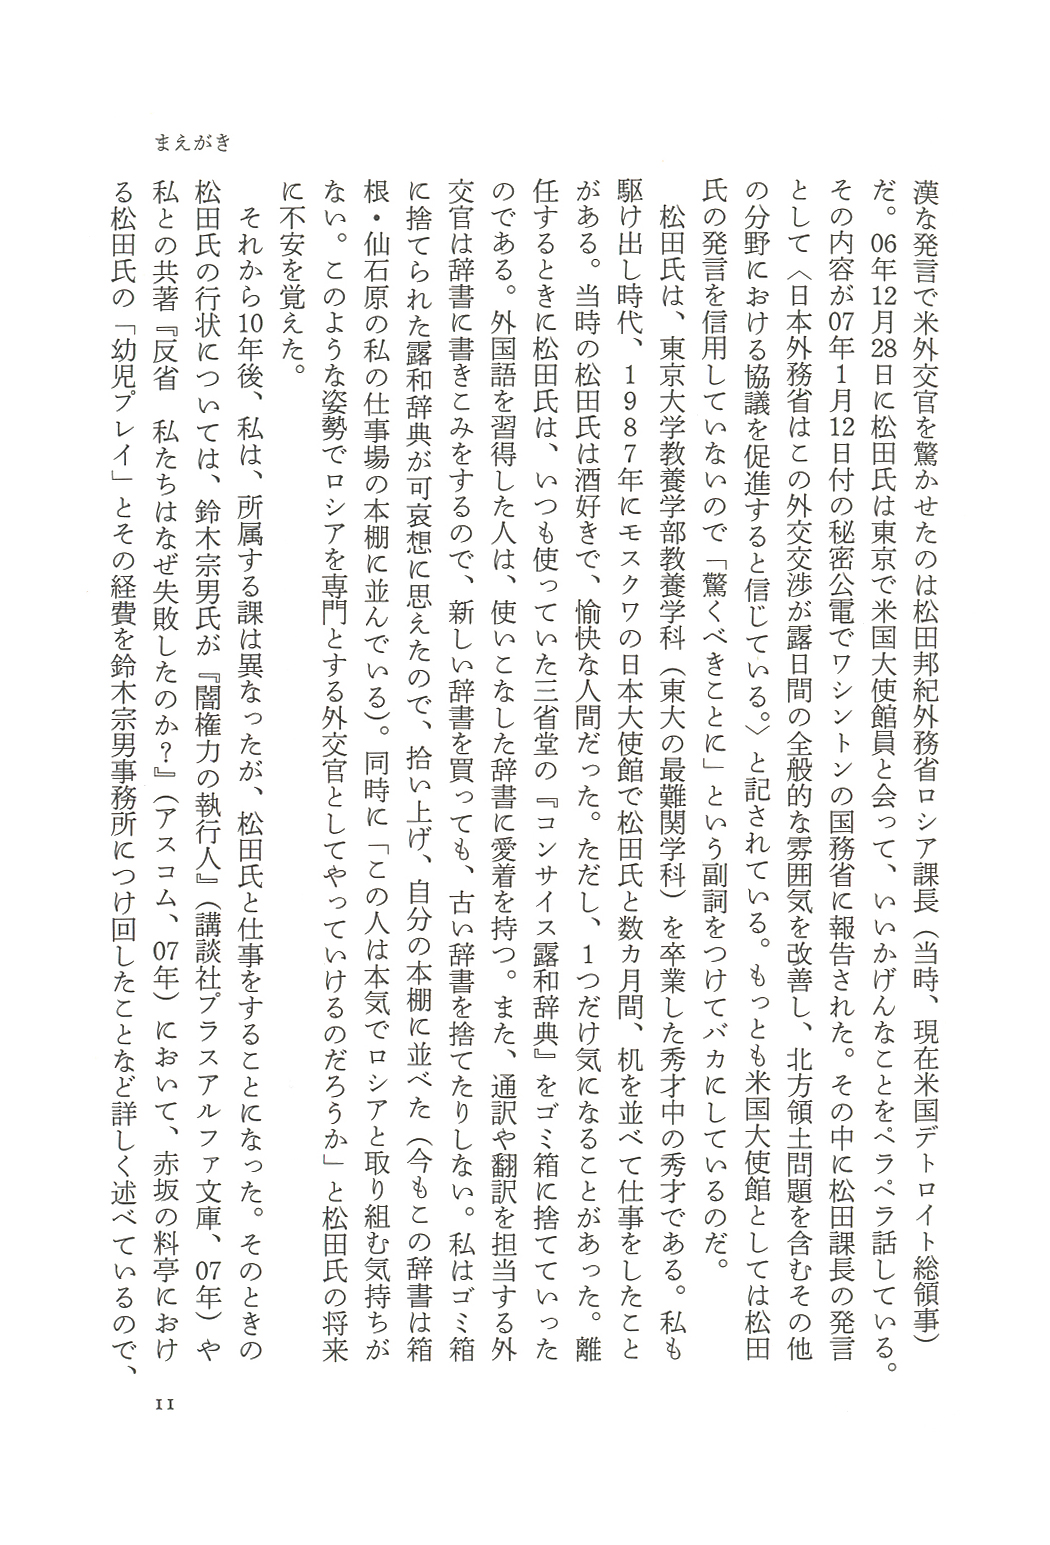 まえがき
漢な発言で米外交官を驚かせたのは松田邦紀外務省ロシア課長（当時、現在米国デトロイト総領事）
だ。06年12月28日に松田氏は東京で米国大使館員と会って、いいかげんなことをペラペラ話している。
その内容が07年1月12日付の秘密公電でワシントンの国務省に報告された。その中に松田課長の発言
として〈日本外務省はこの外交交渉が露日間の全般的な雰囲気を改善し、北方領土問題を含むその他
の分野における協議を促進すると信じている。〉と記されている。もっとも米国大使館としては松田
氏の発言を信用していないので「驚くべきことに」という副詞をつけてバカにしているのだ。
　松田氏は、東京大学教養学部教養学科（東大の最難関学科）を卒業した秀才中の秀才である。私も
駆け出し時代、1987年にモスクワの日本大使館で松田氏と数カ月間、机を並べて仕事をしたこと
がある。当時の松田氏は酒好きで、愉快な人間だった。ただし、1つだけ気になることがあった。離
任するときに松田氏は、いつも使っていた三省堂の『コンサイス露和辞典』をゴミ箱に捨てていった
のである。外国語を習得した人は、使いこなした辞書に愛着を持つ。また、通訳や翻訳を担当する外
交官は辞書に書きこみをするので、新しい辞書を買っても、古い辞書を捨てたりしない。私はゴミ箱
に捨てられた露和辞典が可哀想に思えたので、拾い上げ、自分の本棚に並べた（今もこの辞書は箱
根・仙石原の私の仕事場の本棚に並んでいる）。同時に「この人は本気でロシアと取り組む気持ちが
ない。このような姿勢でロシアを専門とする外交官としてやっていけるのだろうか」と松田氏の将来
に不安を覚えた。
　それから10年後、私は、所属する課は異なったが、松田氏と仕事をすることになった。そのときの
松田氏の行状については、鈴木宗男氏が『闇権力の執行人』（講談社プラスアルファ文庫、07年）や
私との共著『反省　私たちはなぜ失敗したのか？』（アスコム、07年）において、赤坂の料亭におけ
る松田氏の「幼児プレイ」とその経費を鈴木宗男事務所につけ回したことなど詳しく述べているので、
11